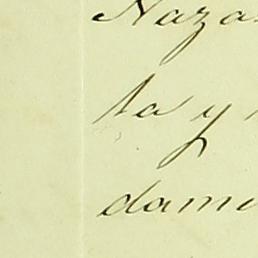 Naza
ta y
dami